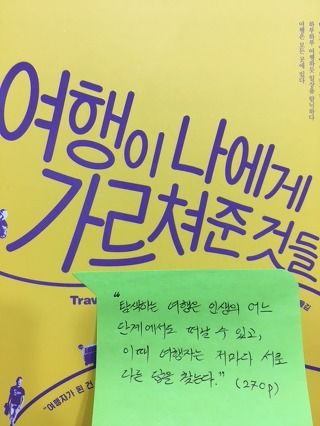 하루하루 여행하듯 일상을 탐닉하다
여행은 모든 곳에 있다
여행이 나에게
가르쳐준 것들
Trav
“탐색하는 여행은 인생의 어느
단계에서도 떠날 수 있고,
이때 여행자는 저마다 서로
다른 답을 찾는다.” (270p)
“여행자가 된 건